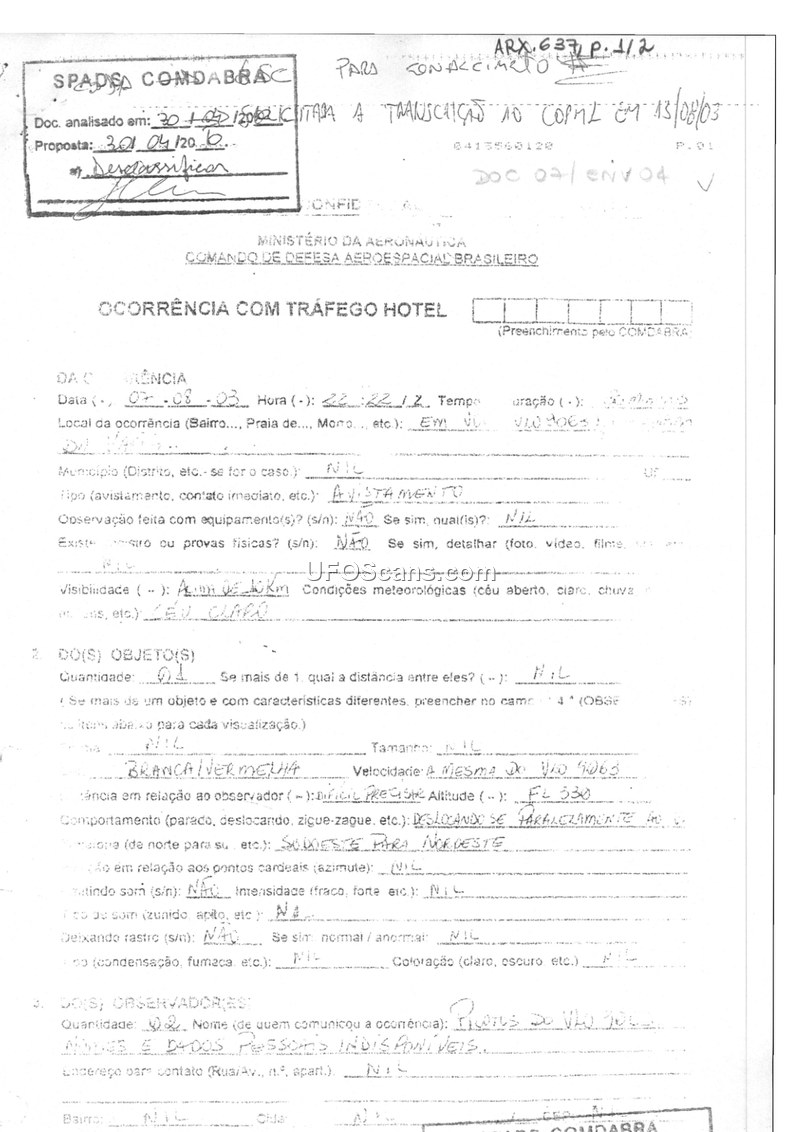 ARX.637, p. 1/2
SPADE COMDABRA
PARA CONHECIMENTO
Doc. analisado em: 30
A TRANSCRIÇÃO AO COPM1 EM 13/08/03
Proposta: 30/04/20
Desclassificar
0413560120 P.01
DOC 07/ENV 04
CONFID
MINISTÉRIO DA AERONÁUTICA
COMANDO DE DEFESA AEROESPACIAL BRASILEIRO
OCORRÊNCIA COM TRÁFEGO HOTEL
(Preenchimento pelo COMDABRA)
DA OCORRÊNCIA
Data ( - ) 07 . 08 . 03 Hora ( - ): 22 : 22 / Z Tempo uração ( - ):
Local da ocorrência (Bairro..., Praia de..., Morro..., etc.): EM VLO 9063
Município (Distrito, etc.- se for o caso.): NIL UF
Tipo (avistamento, contato imediato, etc.): AVISTAMENTO
Observação feita com equipamento(s)? (s/n): NÃO Se sim, qual(is)?: NIL
Existe registro ou provas físicas? (s/n): NÃO Se sim, detalhar (foto, vídeo, filme,
NIL
UFOScans.com
Visibilidade ( -- ): ACIMA DE 10Km Condições meteorológicas (céu aberto, claro, chuva
etc.): CÉU CLARO
2. DO(S) OBJETO(S)
Quantidade: 01 Se mais de 1, qual a distância entre eles? ( -- ): NIL
( Se mais de um objeto e com características diferentes, preencher no campo 4 " (OBSE
os itens abaixo para cada visualização.)
NIL Tamanho: NIL
BRANCA/VERMELHA Velocidade: A MESMA DO VLO 9063
tância em relação ao observador ( -- ): DIFÍCIL PRECISAR Altitude ( -- ): FL 330
Comportamento (parado, deslocando, zigue-zague, etc.): DESLOCANDO SE PARALELAMENTE AO
(de norte para su , etc.): SUDOESTE PARA NORDESTE
ão em relação aos pontos cardeais (azimute): NIL
itindo som (s/n): NÃO Intensidade (fraco, forte, etc.): NIL
Tipo de som (zunido, apito, etc.):
Deixando rastro (s/n): NÃO Se sim, normal / anormal: NIL
Tipo (condensação, fumaça, etc.): NIL Coloração (claro, escuro, etc.) NIL
3. DO(S) OBSERVADOR(ES)
Quantidade: 02 Nome (de quem comunicou a ocorrência): PILOTOS DO VLO
NOMES E DADOS PESSOAIS INDISPONÍVEIS.
Endereço para contato (Rua/Av., n.º, apart.): NIL
Bairro: NIL Cidade: NIL CEP: NIL
COMDABRA